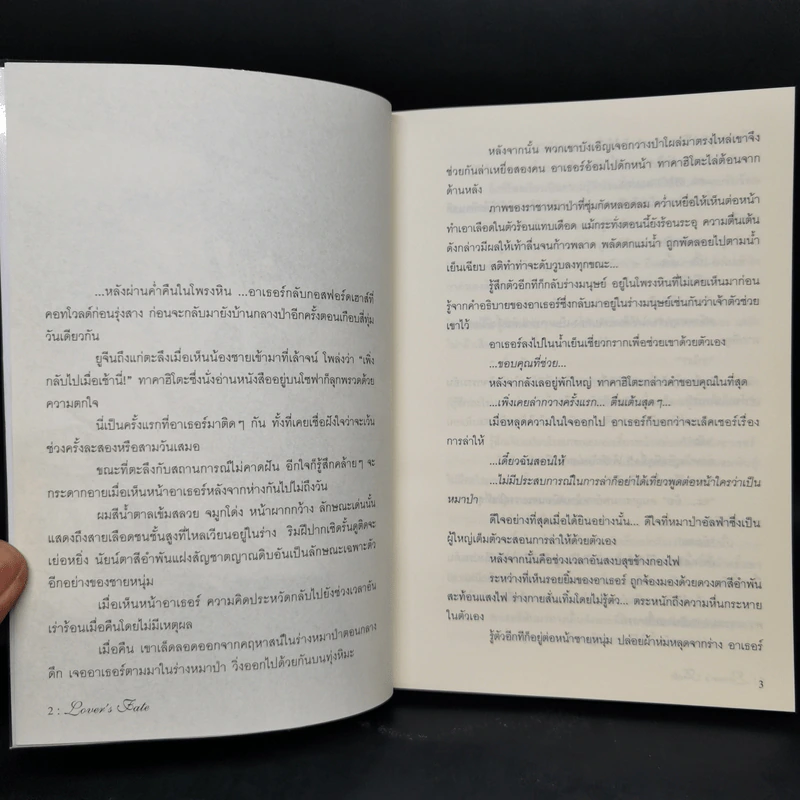 ...หลังผ่านค่ำคืนในโพรงหิน ...อาเธอร์กลับกอสฟอร์ดเฮาส์ที่
คอทโวลด์ก่อนรุ่งสาง ก่อนจะกลับมายังบ้านกลางป่าอีกครั้งตอนเกือบสี่ทุ่ม
วันเดียวกัน
ยูจีนถึงแก่ตะลึงเมื่อเห็นน้องชายเข้ามาที่เล้าจน์ โพล่งว่า "เพิ่ง
กลับไปเมื่อเช้านี่!" ทาคาฮิโตะซึ่งนั่งอ่านหนังสืออยู่บนโซฟาก็ลุกพรวดด้วย
ความตกใจ
นี่เป็นครั้งแรกที่อาเธอร์มาติดๆ กัน ทั้งที่เคยเชื่อฝังใจว่าจะเว้น
ช่วงครั้งละสองหรือสามวันเสมอ
ขณะที่ตะลึงกับสถานการณ์ไม่คาดฝัน อีกใจก็รู้สึกคล้ายๆ จะ
กระดากอายเมื่อเห็นหน้าอาเธอร์หลังจากห่างกันไปไม่ถึงวัน
ผมสีน้ำตาลเข้มสลวย จมูกโด่ง หน้าผากกว้าง ลักษณะเด่นนั้น
แสดงถึงสายเลือดชนชั้นสูงที่ไหลเวียนอยู่ในร่าง ริมฝีปากเชิดรั้นดูติดจะ
เย่อหยิ่ง นัยน์ตาสีอำพันแฝงสัญชาตญาณดิบอันเป็นลักษณะเฉพาะตัว
อีกอย่างของชายหนุ่ม
เมื่อเห็นหน้าอาเธอร์ ความคิดประหวัดกลับไปยังช่วงเวลาอัน
เร่าร้อนเมื่อคืนโดยไม่มีเหตุผล
เมื่อคืน เขาเล็ดลอดออกจากคฤหาสน์ในร่างหมาป่าตอนกลาง
ดึก เจออาเธอร์ตามมาในร่างหมาป่า วิ่งออกไปด้วยกันบนทุ่งหิมะ
2 : Lover's Fate
หลังจากนั้น พวกเขาบังเอิญเจอกวางป่าโผล่มาตรงไหล่เขาจึง
ช่วยกันล่าเหยื่อสองคน อาเธอร์อ้อมไปดักหน้า ทาคาฮิโตะไล่ต้อนจาก
ด้านหลัง
ภาพของราชาหมาป่าที่ซุ่มกัดหลอดลม คว่ำเหยื่อให้เห็นต่อหน้า
ทำเอาเลือดในตัวร้อนแทบเดือด แม้กระทั่งตอนนี้ยังร้อนระอุ ความตื่นเต้น
ดังกล่าวมีผลให้เท้าลื่นจนก้าวพลาด พลัดตกแม่น้ำ ถูกพัดลอยไปตามน้ำ
เย็นเฉียบ สติทำท่าจะดับวูบลงทุกขณะ...
รู้สึกตัวอีกทีก็กลับร่างมนุษย์ อยู่ในโพรงหินที่ไม่เคยเห็นมาก่อน
รู้จากคำอธิบายของอาเธอร์ซึ่งกลับมาอยู่ในร่างมนุษย์เช่นกันว่าเจ้าตัวช่วย
เขาไว้
อาเธอร์ลงไปในน้ำเย็นเชี่ยวกรากเพื่อช่วยเขาด้วยตัวเอง
...ขอบคุณที่ช่วย...
หลังจากลังเลอยู่พักใหญ่ ทาคาฮิโตะกล่าวคำขอบคุณในที่สุด
...เพิ่งเคยล่ากวางครั้งแรก... ตื่นเต้นสุดๆ...
เมื่อหลุดความในใจออกไป อาเธอร์ก็บอกว่าจะเล็คเชอร์เรื่อง
การล่าให้
...เดี๋ยวฉันสอนให้
...ไม่มีประสบการณ์ในการล่าก็อย่าได้เที่ยวพูดต่อหน้าใครว่าเป็น
หมาป่า
ดีใจอย่างที่สุดเมื่อได้ยินอย่างนั้น... ดีใจที่หมาป่าอัลฟ่าซึ่งเป็น
ผู้ใหญ่เต็มตัวจะสอนการล่าให้ด้วยตัวเอง
หลังจากนั้นคือช่วงเวลาอันสงบสุขข้างกองไฟ
ระหว่างที่เห็นรอยยิ้มของอาเธอร์ ถูกจ้องมองด้วยดวงตาสีอำพัน
สะท้อนแสงไฟ ร่างกายสั่นเทิ้มโดยไม่รู้ตัว... ตระหนักถึงความหื่นกระหาย
ในตัวเอง
รู้ตัวอีกทีก็อยู่ต่อหน้าชายหนุ่ม ปล่อยผ้าห่มหลุดจากร่าง อาเธอร์
3